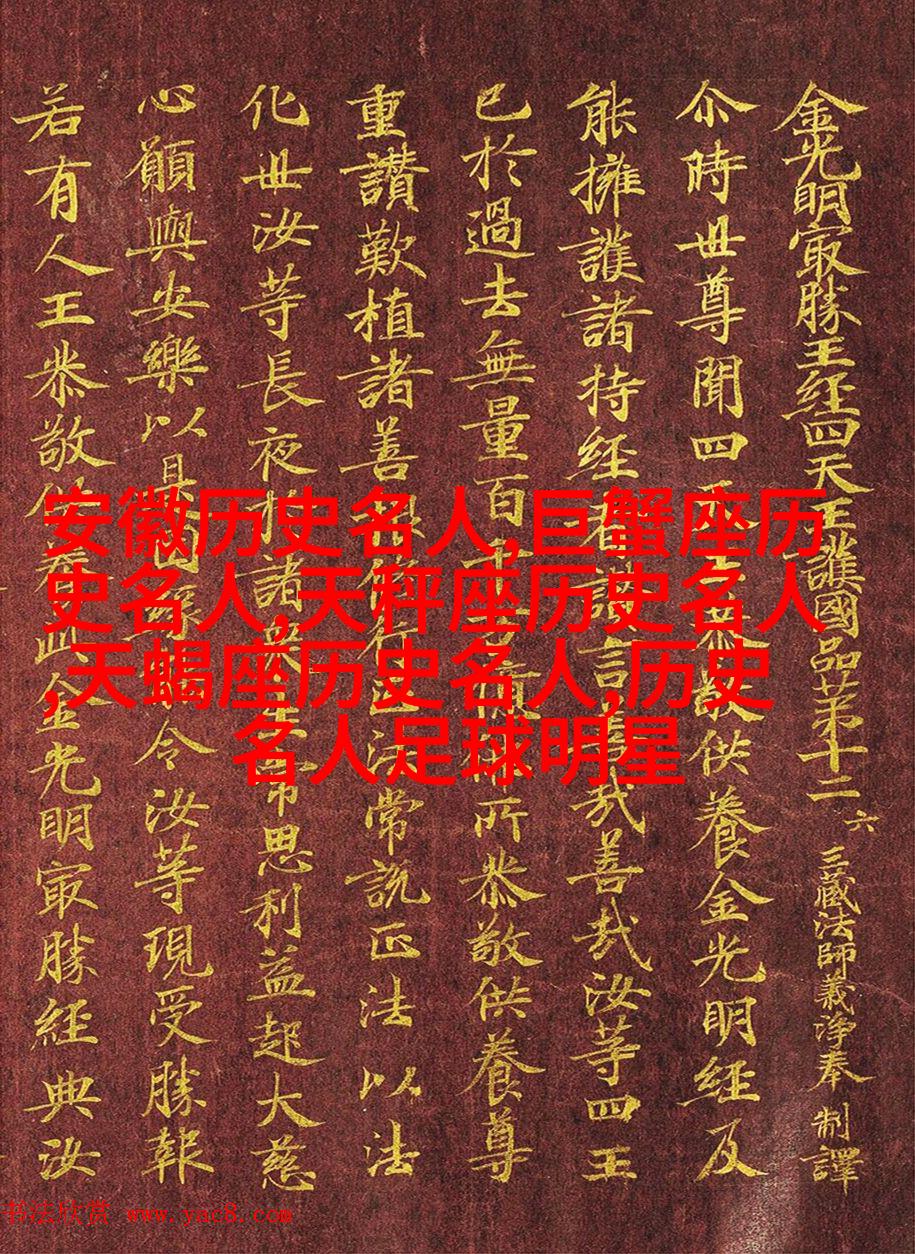 金光明冣勝王经四天王護國品苐十二 六 三藏法師義淨奉 制譯
尒時世尊聞四天王恭敬供養金光明經及
能擁護諸持经者讚言善哉善哉汝等四王
已於過去無量百千所恭敬供養尊
重讚歎植諸善根修行正法常説正法以法
化世汝等長夜於諸眾生常思利益起大慈
心願與安樂以是因緣令汝等現受勝報
若有人王恭敬供養此金光明冣勝經典汝
安徽历史名人,巨蟹座历
史名人,天秤座历史名人
,天蝎座历史名人,历史
名人足球明星
书法欣赏 www.yac8.com